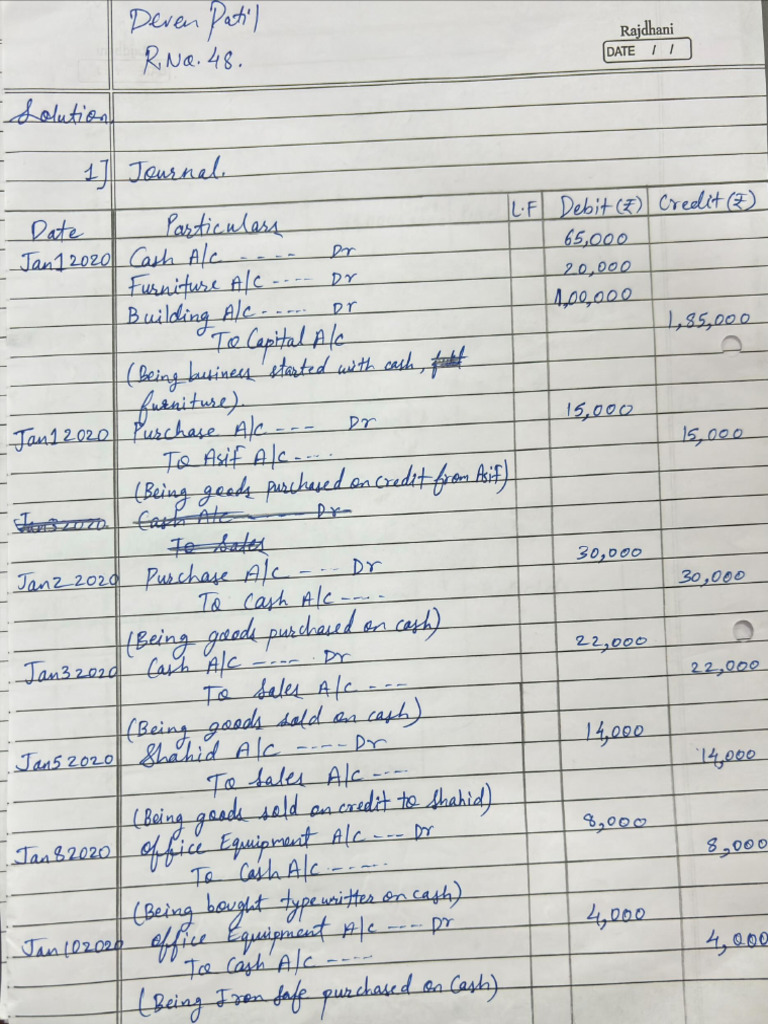 Deven Patil
R.No. 48.
Rajdhani
DATE / /
Solution
1] Journal.
Date Particulars L.F Debit (₹) Credit (₹)
Jan 1 2020 Cash A/c ----- Dr 65,000
Furniture A/c ---- Dr 20,000
Building A/c ----- Dr 1,00,000
To Capital A/c 1,85,000
(Being business started with cash,
furniture).
Jan 1 2020 Purchase A/c --- Dr 15,000
To Asif A/c ---- 15,000
(Being goods purchased on credit from Asif)
Jan 3 2020 Cash A/c ------ Dr
To Sales
Jan 2 2020 Purchase A/c --- Dr 30,000
To Cash A/c ---- 30,000
(Being goods purchased on cash)
Jan 3 2020 Cash A/c ----- Dr 22,000
To Sales A/c --- 22,000
(Being goods sold on cash)
Jan 5 2020 Shahid A/c ---- Dr 14,000
To Sales A/c --- 14,000
(Being goods sold on credit to Shahid)
Jan 8 2020 Office Equipment A/c --- Dr 8,000
To Cash A/c ------ 8,000
(Being bought typewritter on cash)
Jan 10 2020 office Equipment A/c ---- Dr 4,000
To Cash A/c ---- 4,000
(Being Iron Safe purchased on Cash)